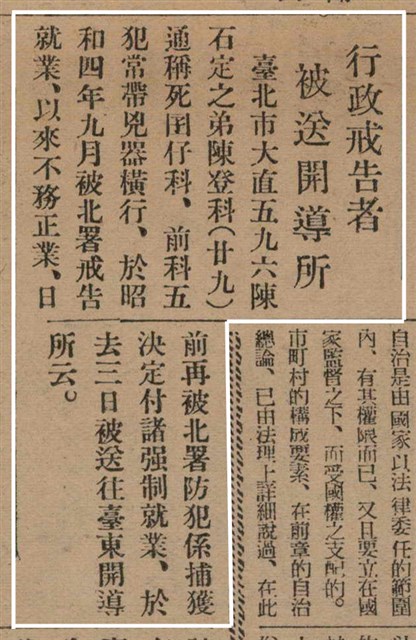 行政戒告者
被送開導所
臺北市大直五九六陳
石定之弟陳登科（廿九）
通稱死囝仔科、前科五
犯常帶兇器橫行、於昭
和四年九月被北署戒告
就業、以來不務正業、日
前再被北署防犯係捕獲
決定付諸强制就業、於
去三日被送往臺東開導
所云。
自治是由國家以法律委任的範圍
內、有其權限而已、又且要立在國
家監督之下、而受國權之支配的。
市町村的構成要素、在前章的自治
總論、已由法理上詳細說過、在此